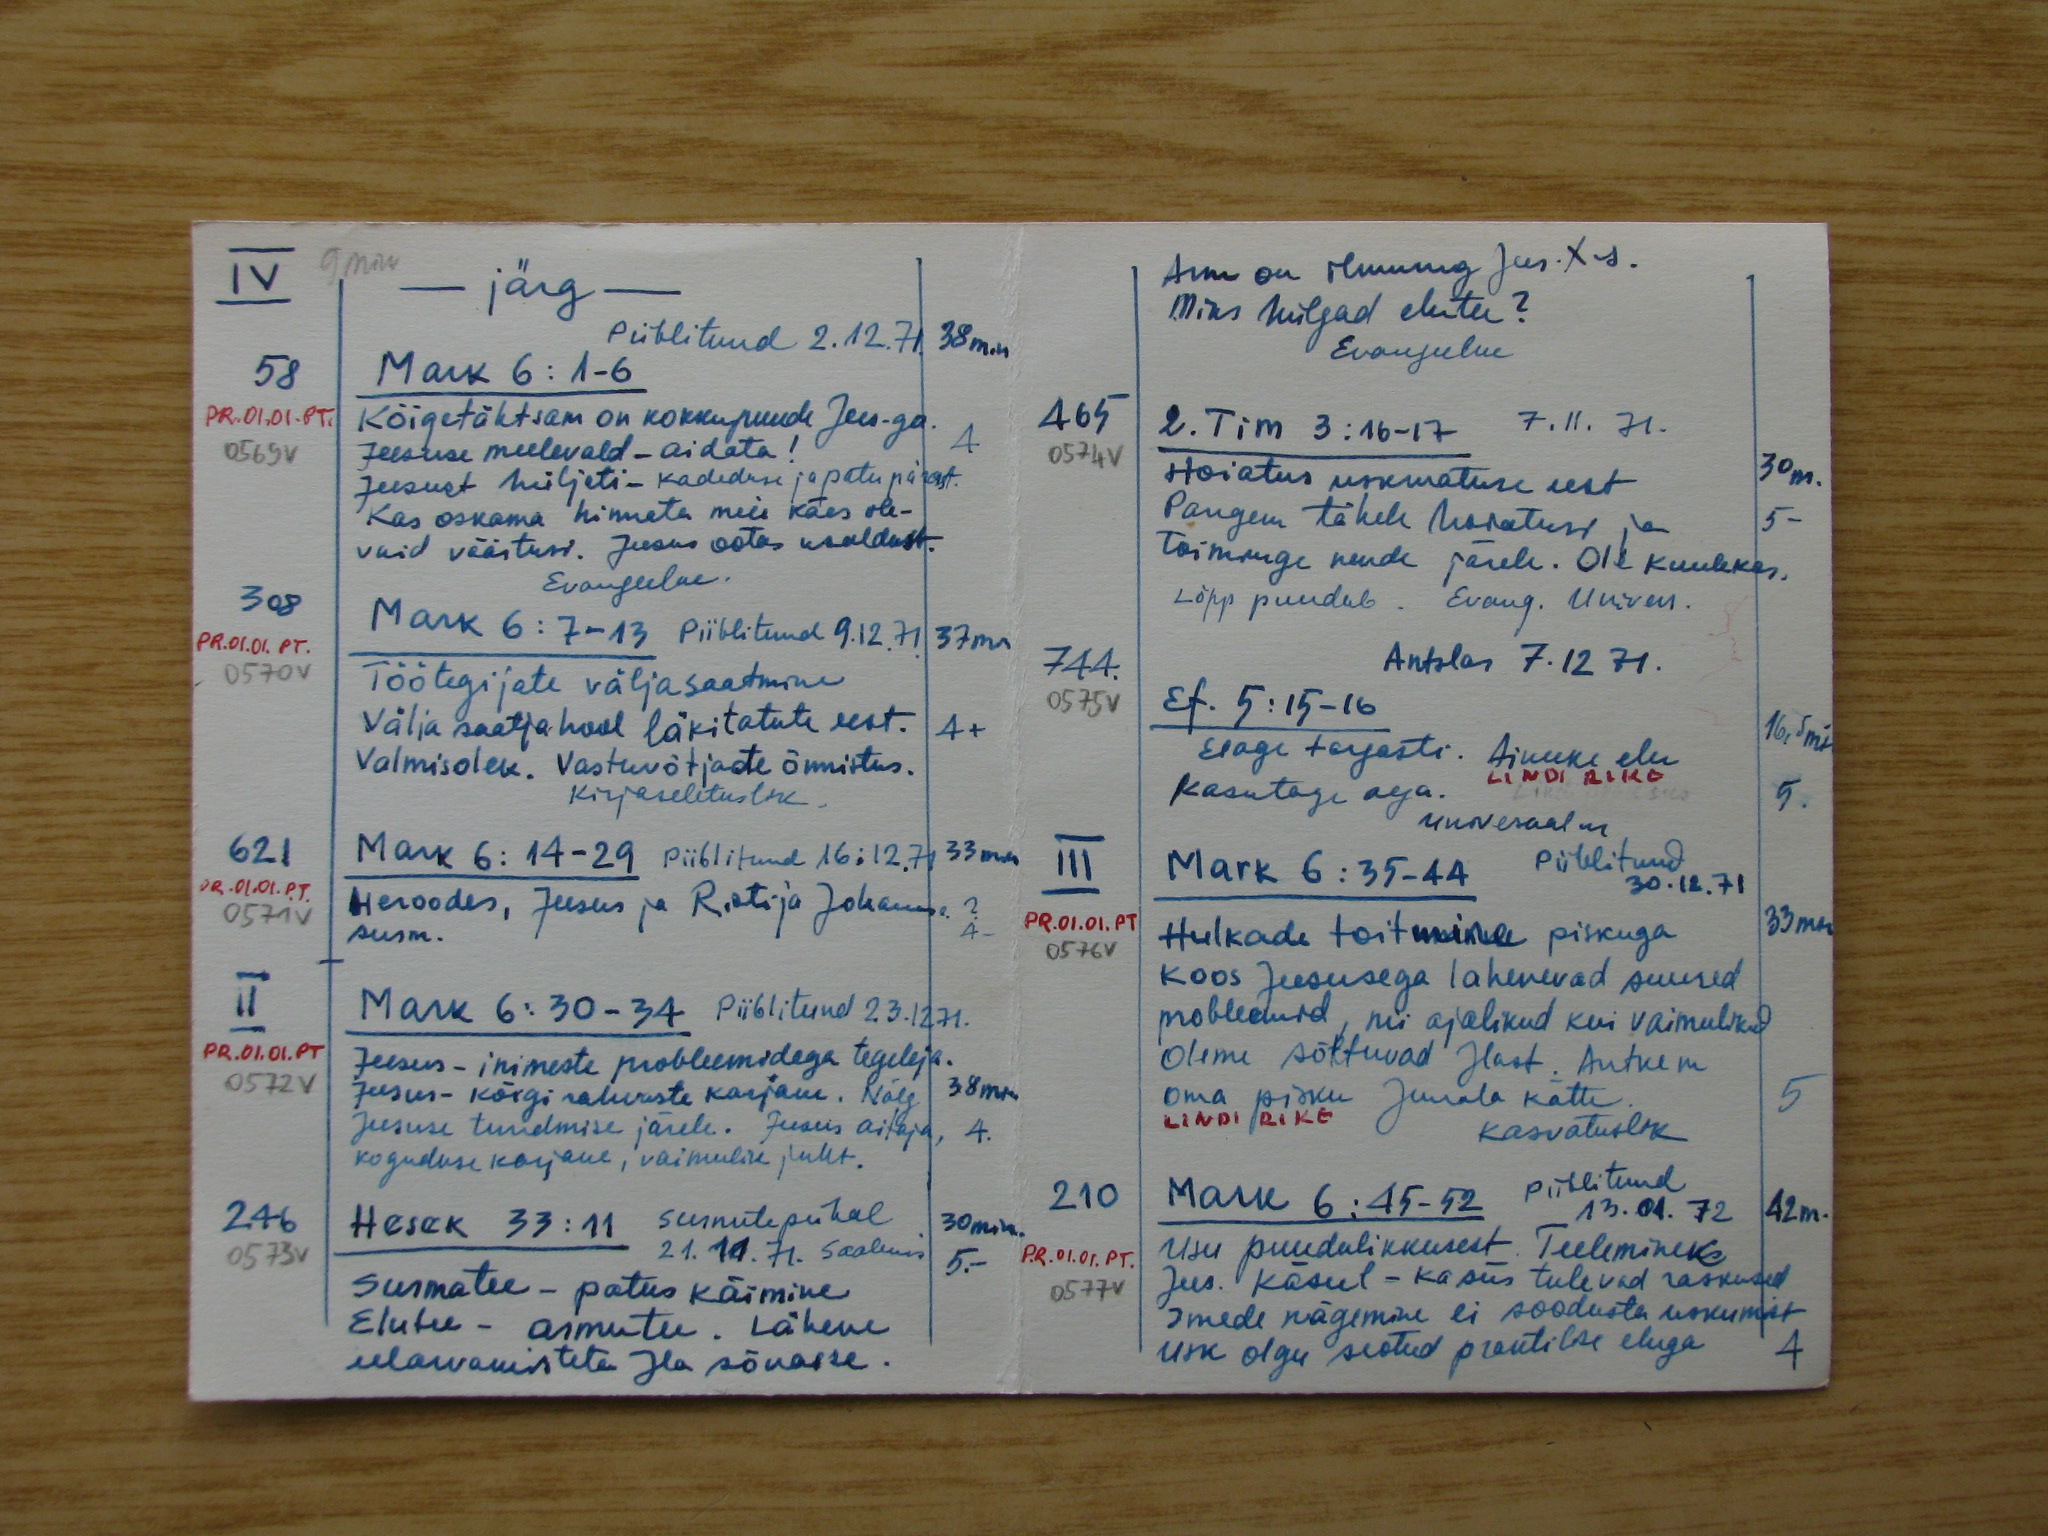 IV 9 min
— järg —
Piiblitund 2.12.71. 38 min
58 Mark 6:1-6
PR.01.01.PT. Kõigetähtsam on kokkupuude Jees-ga.
0569V Jeesuse meelevald - aidata! 4
Jeesust hüljati - kadeduse ja patu pärast.
Kas oskama hinnata meie käes ole-
vaid väärtusi. Jeesus ootas usaldust.
Evangeelne.
308 Mark 6:7-13 Piiblitund 9.12.71 37 min
PR.01.01.PT.
0570V Töötegijate väljasaatmine
Välja saatja hool läkitatute eest. 4+
Valmisolek. Vastuvõtjate õnnistus.
Kirjaseletuslik.
621 Mark 6:14-29 Piiblitund 16.12.71 33 min
PR.01.01.PT.
0571V Heroodes, Jeesus ja Ristija Johannese ?
surm. 4-
II Mark 6:30-34 Piiblitund 23.12.71.
PR.01.01.PT Jeesus - inimeste probleemidega tegeleja.
0572V Jeesus - kõigi rahvaste karjane. Nälg 38 min
Jeesuse tundmise järele. Jeesus aitaja, 4.
koguduse karjane, vaimulik juht.
246 Hesek 33:11 Surnutepühal 30 min.
0573V 21.11.71. Saalemis 5.-
Surmatee - patus käimine
Elutee - armutee. Lähene
eelarvamisteta Jla sõnasse.
Arm on ilmunud Jees. X-s.
Miks hülgad elutee?
Evangeelne
465 2. Tim 3:16-17 7.11.71.
0574V Hoiatus uskmatuse eest 30 m.
Pangem tähele hoiatusi ja 5-
toiminge nende järele. Ole kuulekas.
Lõpp puudub. Evang. Univers.
744. Antslas 7.12 71.
0575V Ef. 5:15-16
16,5 min
Elage targasti. Ainuke elu
LINDI RIKE
Kasutage aega. 5.
universaalne
III Mark 6:35-44 Piiblitund
30.12.71
PR.01.01.PT Hulkade toitmine piskuga 33 min
0576V Koos Jeesusega lahenevad suured
probleemid, nii ajalikud kui vaimulikud
Oleme sõltuvad Jlast. Andkem
oma pisku Jumala kätte. 5
LINDI RIKE Kasvatuslik
210 Mark 6:45-52 Piiblitund
13.01.72 42 m.
PR.01.01.PT. Usu puudulikkusest. Teelemineks
0577V Jees. käsul - ka siis tulevad raskused
Imede nägemine ei soodusta uskumist
Usk olgu seotud praktilise eluga 4